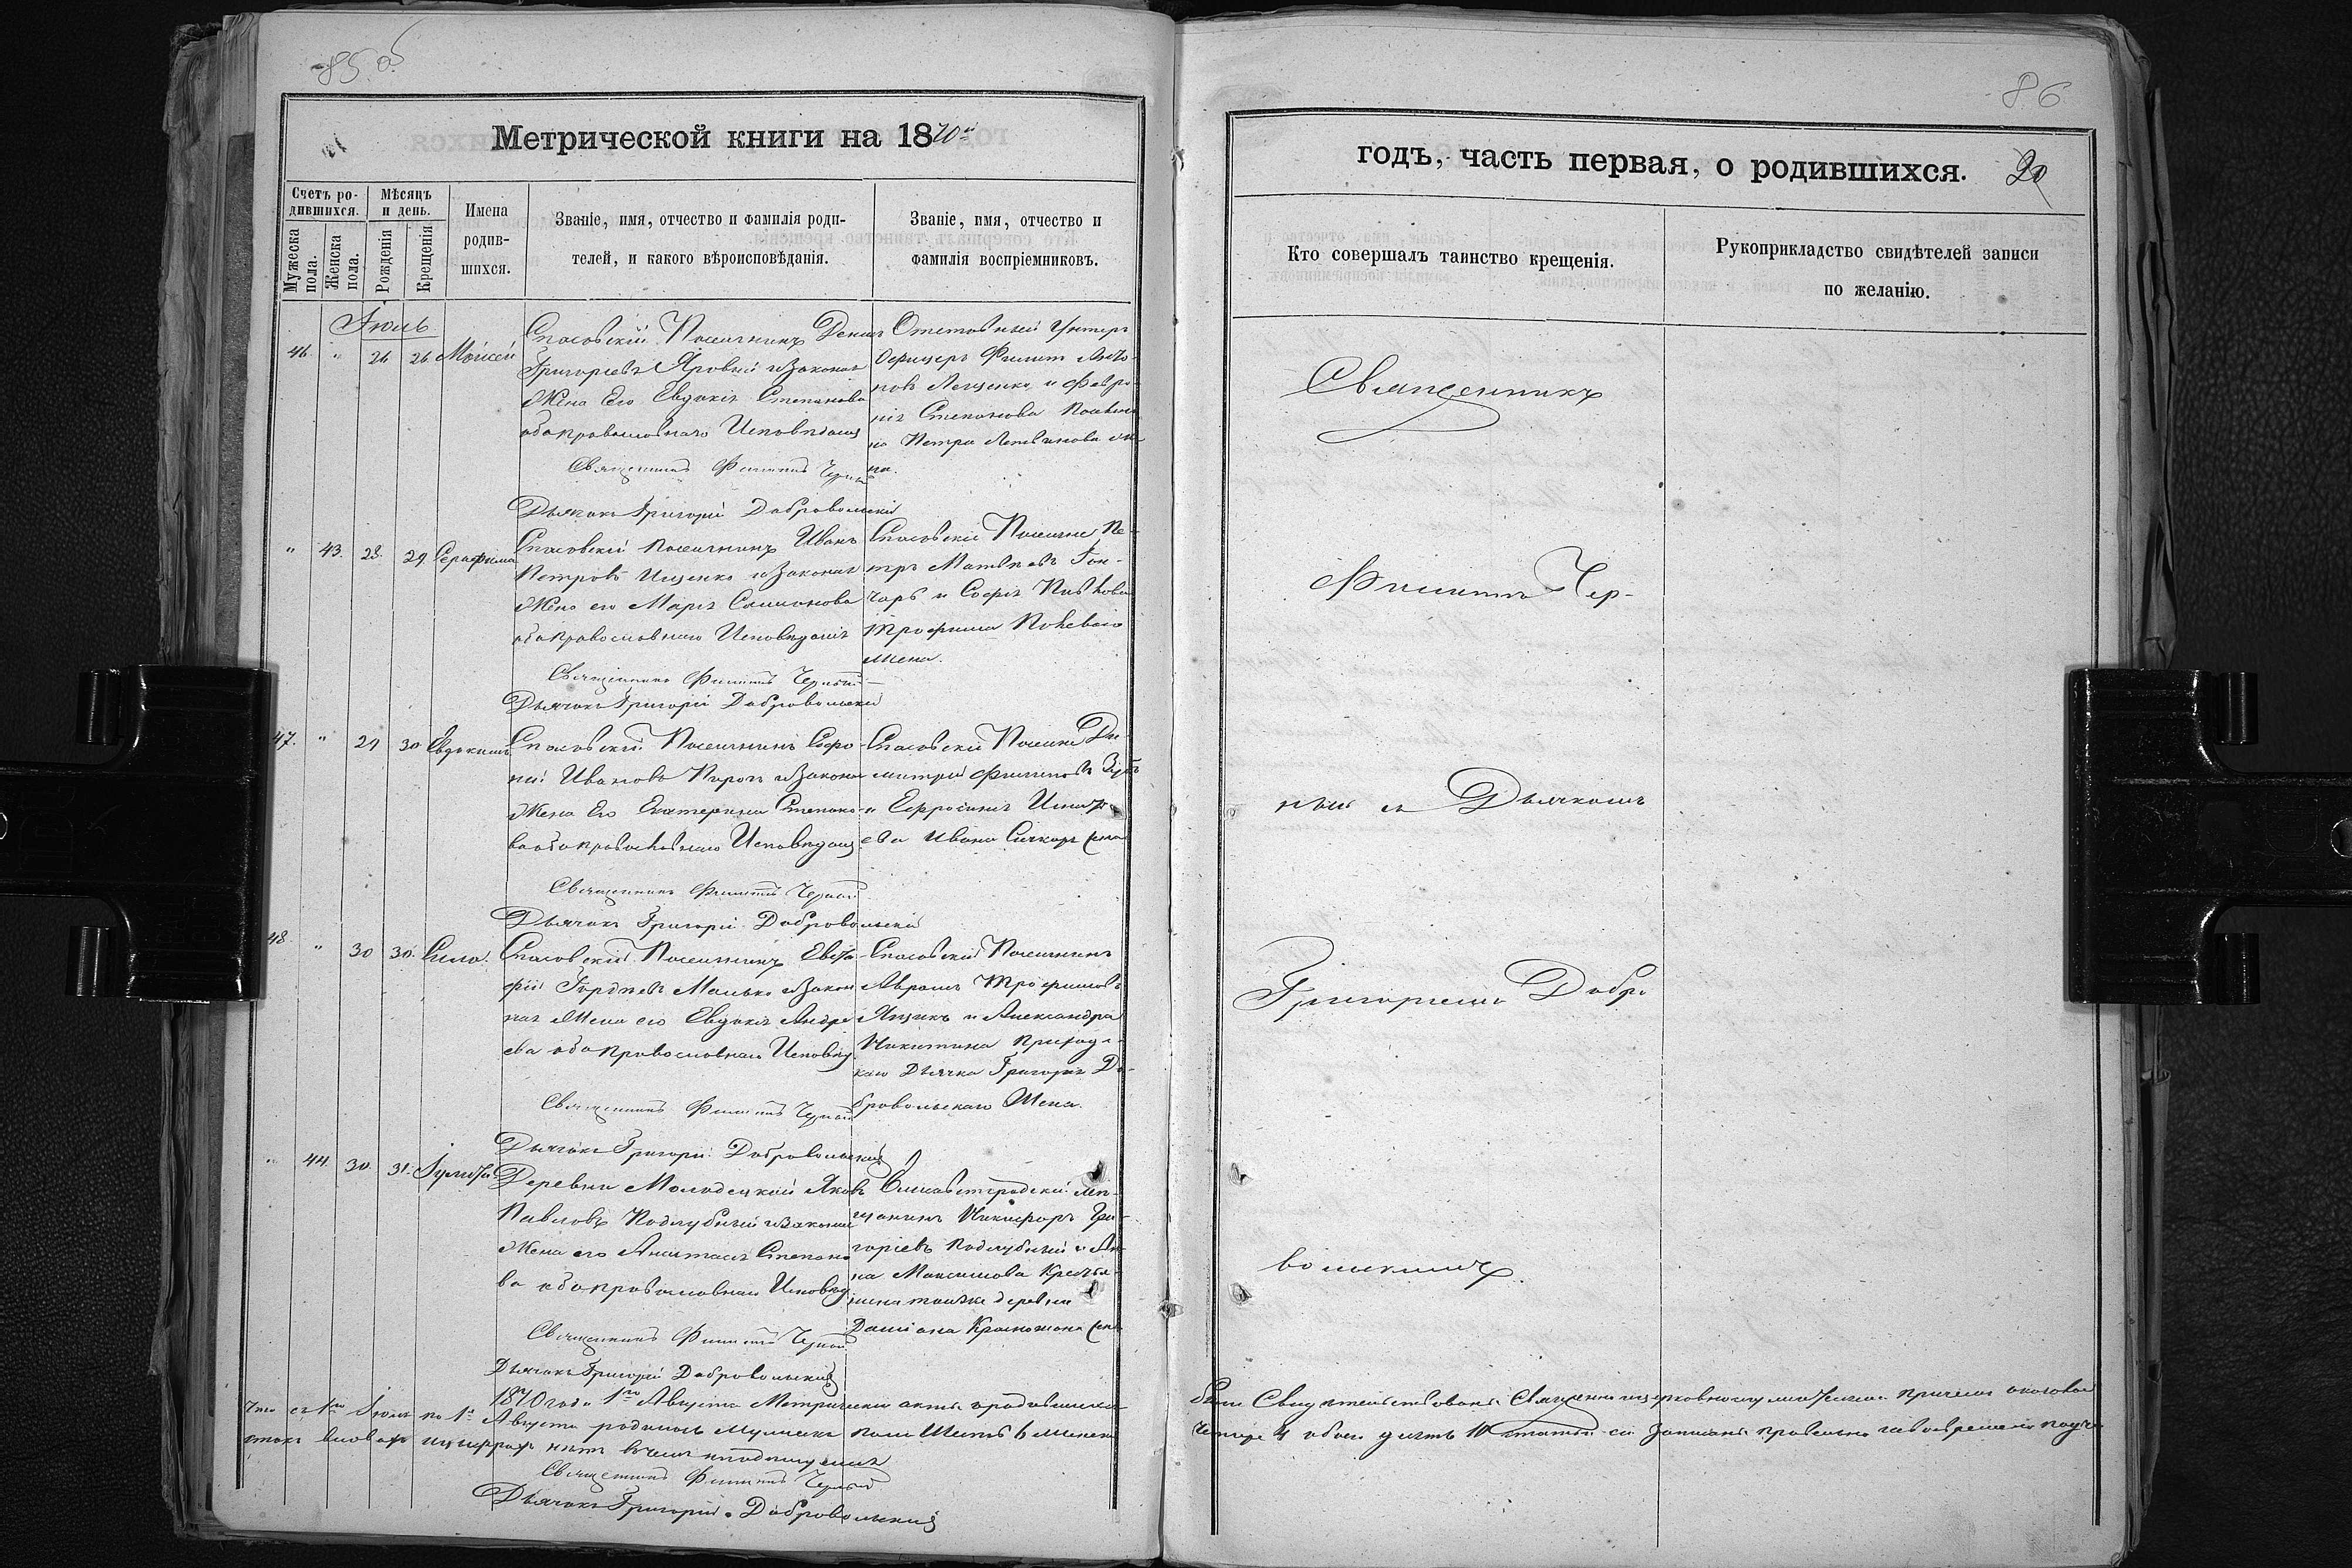 85 об
Метрической книги на 1870й
Счетъ родившихся.
Мужеска пола.
Женска пола.
Мѣсяцъ и день.
Рожденія
Крещенія
Имена родившихся.
Званіе, имя, отчество и фамилія родителей, и какого вѣроисповѣданія.
Званіе, имя, отчество и фамилія воспріемниковъ.
Іюль
46. " 26 26 Моисей
Спасовскій Поселянинъ Денис
Григорьевъ Яровый и законая
Жена Его Евдокія Степанова
оба православнаго Исповѣданія
Священникъ Филиппъ Черный
Дьячокъ Григорій Добровольскій
Отставный Унтеръ
Офицеръ Филипъ Анто-
новъ Лещенко и Февро-
нія Степанова Поселяни-
на Петра Литвинова же-
на.
" 43. 28. 29. Серафима
Спасовскій Поселянинъ Иванъ
Петровъ Ищенко и Законая
Жена его Марія Симонова
оба православнаго Исповѣданія
Священникъ Филиппъ Черный
Дьячокъ Григорій Добровольскій
Спасовскіе Поселяне Пе-
тръ Матвѣевъ Гон-
чаръ и Софія
Трофима
жена.
47. " 29 30 Евдокимъ
Спасовскій Поселянинъ Софро-
ній Ивановъ Пирогъ и Законая
Жена Его Екатерина Степано-
ва оба православнаго Исповѣданія
Священникъ Филиппъ Черный
Дьячокъ Григорій Добровольскій
Спасовскій Поселянинъ Ди-
митрій Филиповъ
и Ефросинія Игнать-
ева Ивана жена
48 " 30 30. Сила.
Спасовскій Поселянинъ Евста-
фій Гордѣевъ Малько и Закон
ная Жена его Евдокія Андре
ева оба православнаго Исповѣд
Священникъ Филиппъ Черный
Дьячокъ Григорій Добровольскій
Спасовскій Поселянинъ
Аврамъ Трофимовъ
Ящукъ и Александра
Никитина приход-
каго Дьячка Григорія До-
бровольскаго Жена.
" 44. 30. 31. Іулитта
Деревни Молодецкой Яковъ
Павловъ Поддубный и Законая
Жена его Анастасія Степано
ва оба православнаго Исповѣд
Священникъ Филиппъ Черный
Дьячокъ Григорій Добровольскій
Елисаветградскій мѣ-
щанинъ Никифоръ Гри-
горіевъ Поддубный и Ан-
на Максимова Крестья-
нина той же деревни
Даміана Красножона жена
1870 года 1го Августа Метрическіе акты о родившихся
что съ 1го Іюля по 1е Августа родилось Мужеска пола Шесть 6 Женска
Священникъ Филиппъ Черный
Дьячокъ Григорій Добровольскій
86
годъ, часть первая, о родившихся.
20
Кто совершалъ таинство крещенія.
Рукоприкладство свидѣтелей записи по желанію.
Священникъ
Филиппъ Чер-
ный съ Дьячкомъ
Григоріемъ Добро
вольскимъ.
были Свидѣтельствованы Священно церковнослужителями причемъ оказалось
четыре 4 обоего десять 10 статьи сіи Записаны правильно